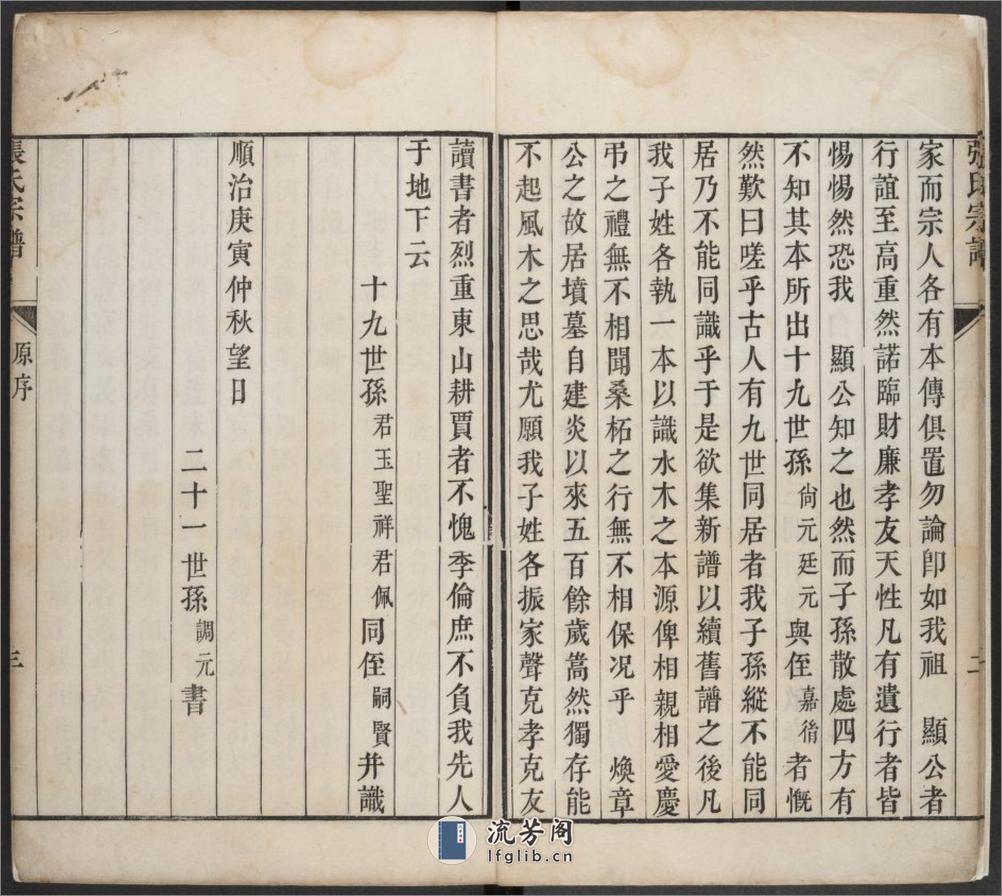 張氏宗譜
二
家而宗人各有本傳俱置勿論卽如我祖　顯公者
行誼至高重然諾臨財廉孝友天性凡有遺行者皆
惕惕然恐我　顯公知之也然而子孫散處四方有
不知其本所出十九世孫尙元廷元與侄嘉脩者慨
然歎曰嗟乎古人有九世同居者我子孫縱不能同
居乃不能同識乎于是欲集新譜以續舊譜之後凡
我子姓各執一本以識水木之本源俾相親相愛慶
弔之禮無不相聞桑柘之行無不相保况乎　煥章
公之故居墳墓自建炎以來五百餘歲嵩然獨存能
不起風木之思哉尤願我子姓各振家聲克孝克友
讀書者烈重東山耕賈者不愧季倫庶不負我先人
于地下云
十九世孫君玉聖祥君佩同侄嗣賢并識
順治庚寅仲秋望日
二十一世孫調元書
張氏宗譜
原序
三
流芳阁
lfglib.cn